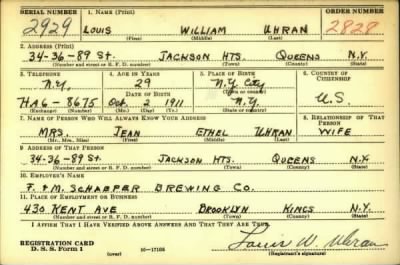 SERIAL NUMBER 1. NAME (Print) ORDER NUMBER
2929 LOUIS WILLIAM UHRAN 2828
(First) (Middle) (Last)
2. ADDRESS (Print)
34-36-89 St. JACKSON HTS. QUEENS N.Y.
(Number and street or R. F. D. number) (Town) (County) (State)
3. TELEPHONE 4. AGE IN YEARS 5. PLACE OF BIRTH 6. COUNTRY OF CITIZENSHIP
N.Y. 29 N.Y. City
DATE OF BIRTH (Town or county)
HA6-8675 Oct. 2 1911 N.Y. U.S.
(Exchange) (Number) (Mo.) (Day) (Yr.) (State or country)
7. NAME OF PERSON WHO WILL ALWAYS KNOW YOUR ADDRESS 8. RELATIONSHIP OF THAT PERSON
MRS. JEAN ETHEL UHRAN WIFE
(Mr., Mrs., Miss) (First) (Middle) (Last)
9. ADDRESS OF THAT PERSON
34-36-89 St. JACKSON HTS. QUEENS N.Y.
(Number and street or R. F. D. number) (Town) (County) (State)
10. EMPLOYER'S NAME
F. & M. SCHAEFER BREWING CO.
11. PLACE OF EMPLOYMENT OR BUSINESS
430 KENT AVE BROOKLYN KINGS N.Y.
(Number and street or R. F. D. number) (Town) (County) (State)
I AFFIRM THAT I HAVE VERIFIED ABOVE ANSWERS AND THAT THEY ARE TRUE.
REGISTRATION CARD Louis W. Uhran
D. S. S. Form 1 (over) 16-17105 (Registrant's signature)